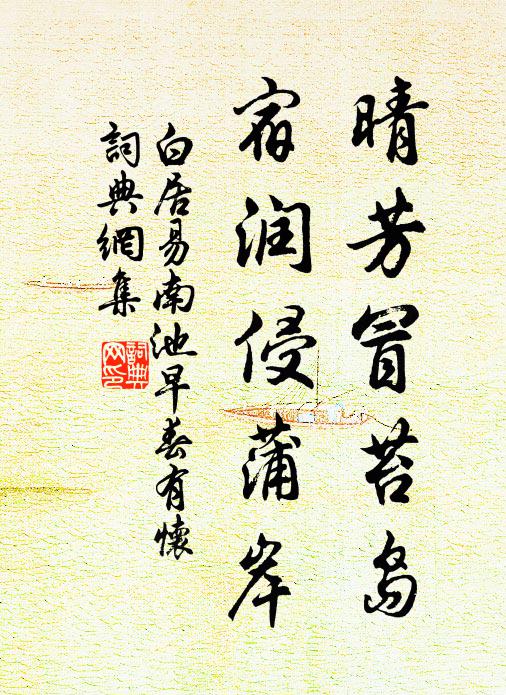 晴芳冒苔岛
宿润侵蒲岸
白居易南池早春有懷
詞典網集
詞典網印